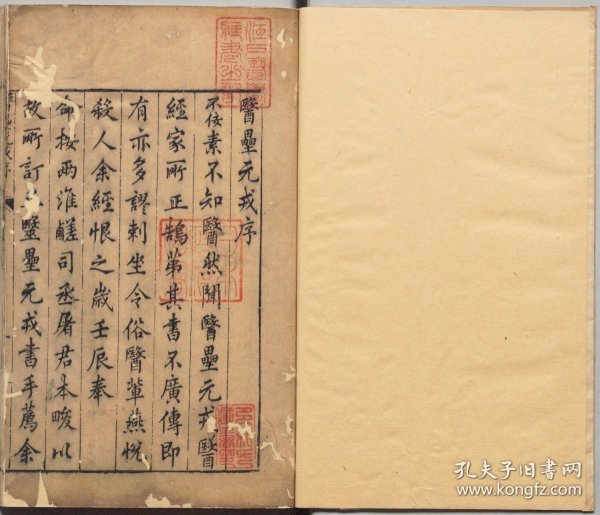 醫壘元戎序
不佞素不知醫然聞醫壘元戎醫
經家所正鵠第其書不廣傳即
有亦多謬剌坐令俗醫輩燕悅
殺人余經恨之歲壬辰奉
命按兩淮鹺司丞屠君本畯以
故所訂 醫壘元戎書手薦余
孔夫子旧书网
www.kongfz.com